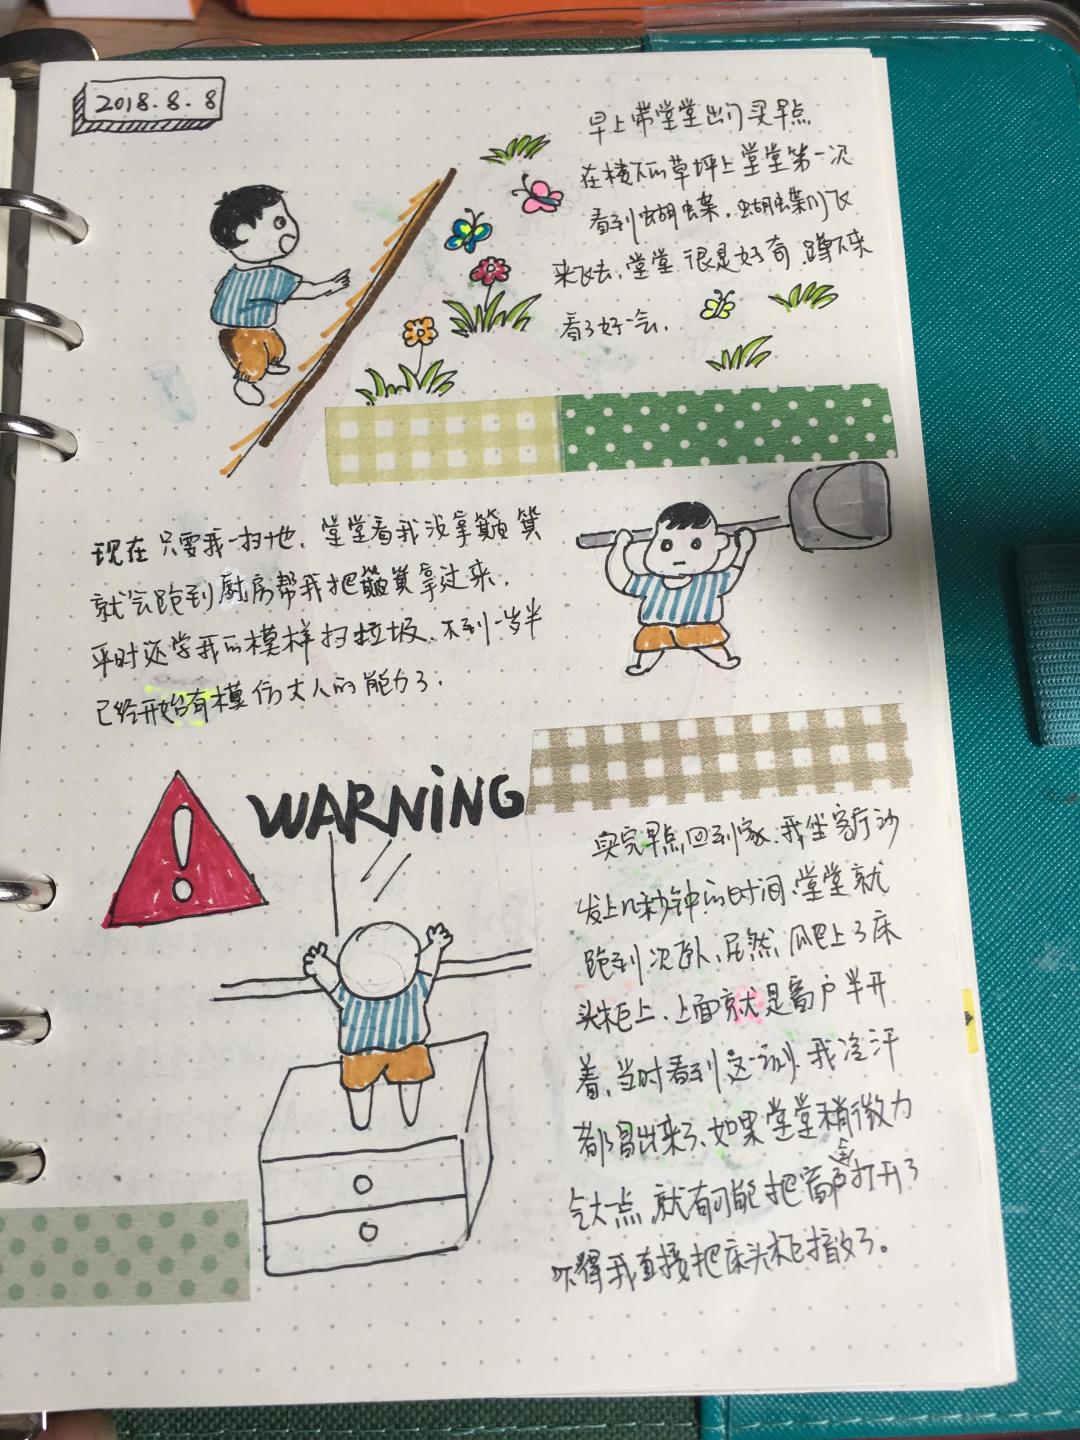 2018.8.8
早上带堂堂出门买早点
在楼下的草坪上堂堂第一次
看到蝴蝶,蝴蝶们飞
来飞去,堂堂很是好奇,蹲下来
看了好一会,
现在只要我一扫地,堂堂看我没拿簸箕
就会跑到厨房帮我把簸箕拿过来,
平时还学我的模样扫垃圾,不到一岁半
已经开始有模仿大人的能力了,
WARNiNG
买完早点回到家,我坐客厅沙
发上几秒钟的时间,堂堂就
跑到次卧,居然爬上了床
头柜上,上面就是窗户半开
着,当时看到这一刻,我冷汗
都冒出来了,如果堂堂稍微力
气大一点,就有可能把窗户全打开了
吓得我直接把床头柜撤了。